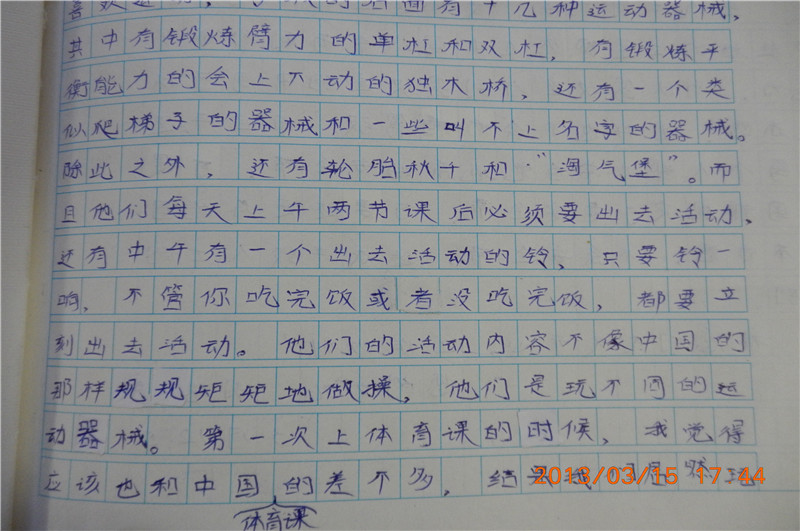 的后面有十几种运动器械，
其中有锻炼臂力的单杠和双杠，有锻炼平
衡能力的会上下动的独木桥，还有一个类
似爬梯子的器械和一些叫不上名字的器械。
除此之外，还有轮胎秋千和“淘气堡”。而
且他们每天上午两节课后必须要出去活动，
还有中午有一个出去活动的铃，只要铃一
响，不管你吃完饭或者没吃完饭，都要立
刻出去活动。他们的活动内容不像中国的
那样规规矩矩地做操，他们是玩不同的运
动器械。第一次上体育课的时候，我觉得
应该也和中国的差不多，结果我
体育课
2013/03/15 17:44